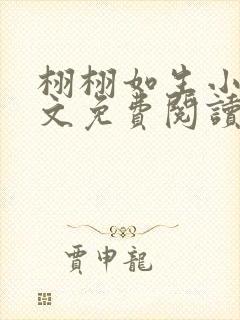 栩栩如生小
文免費閱讀
賈申龍